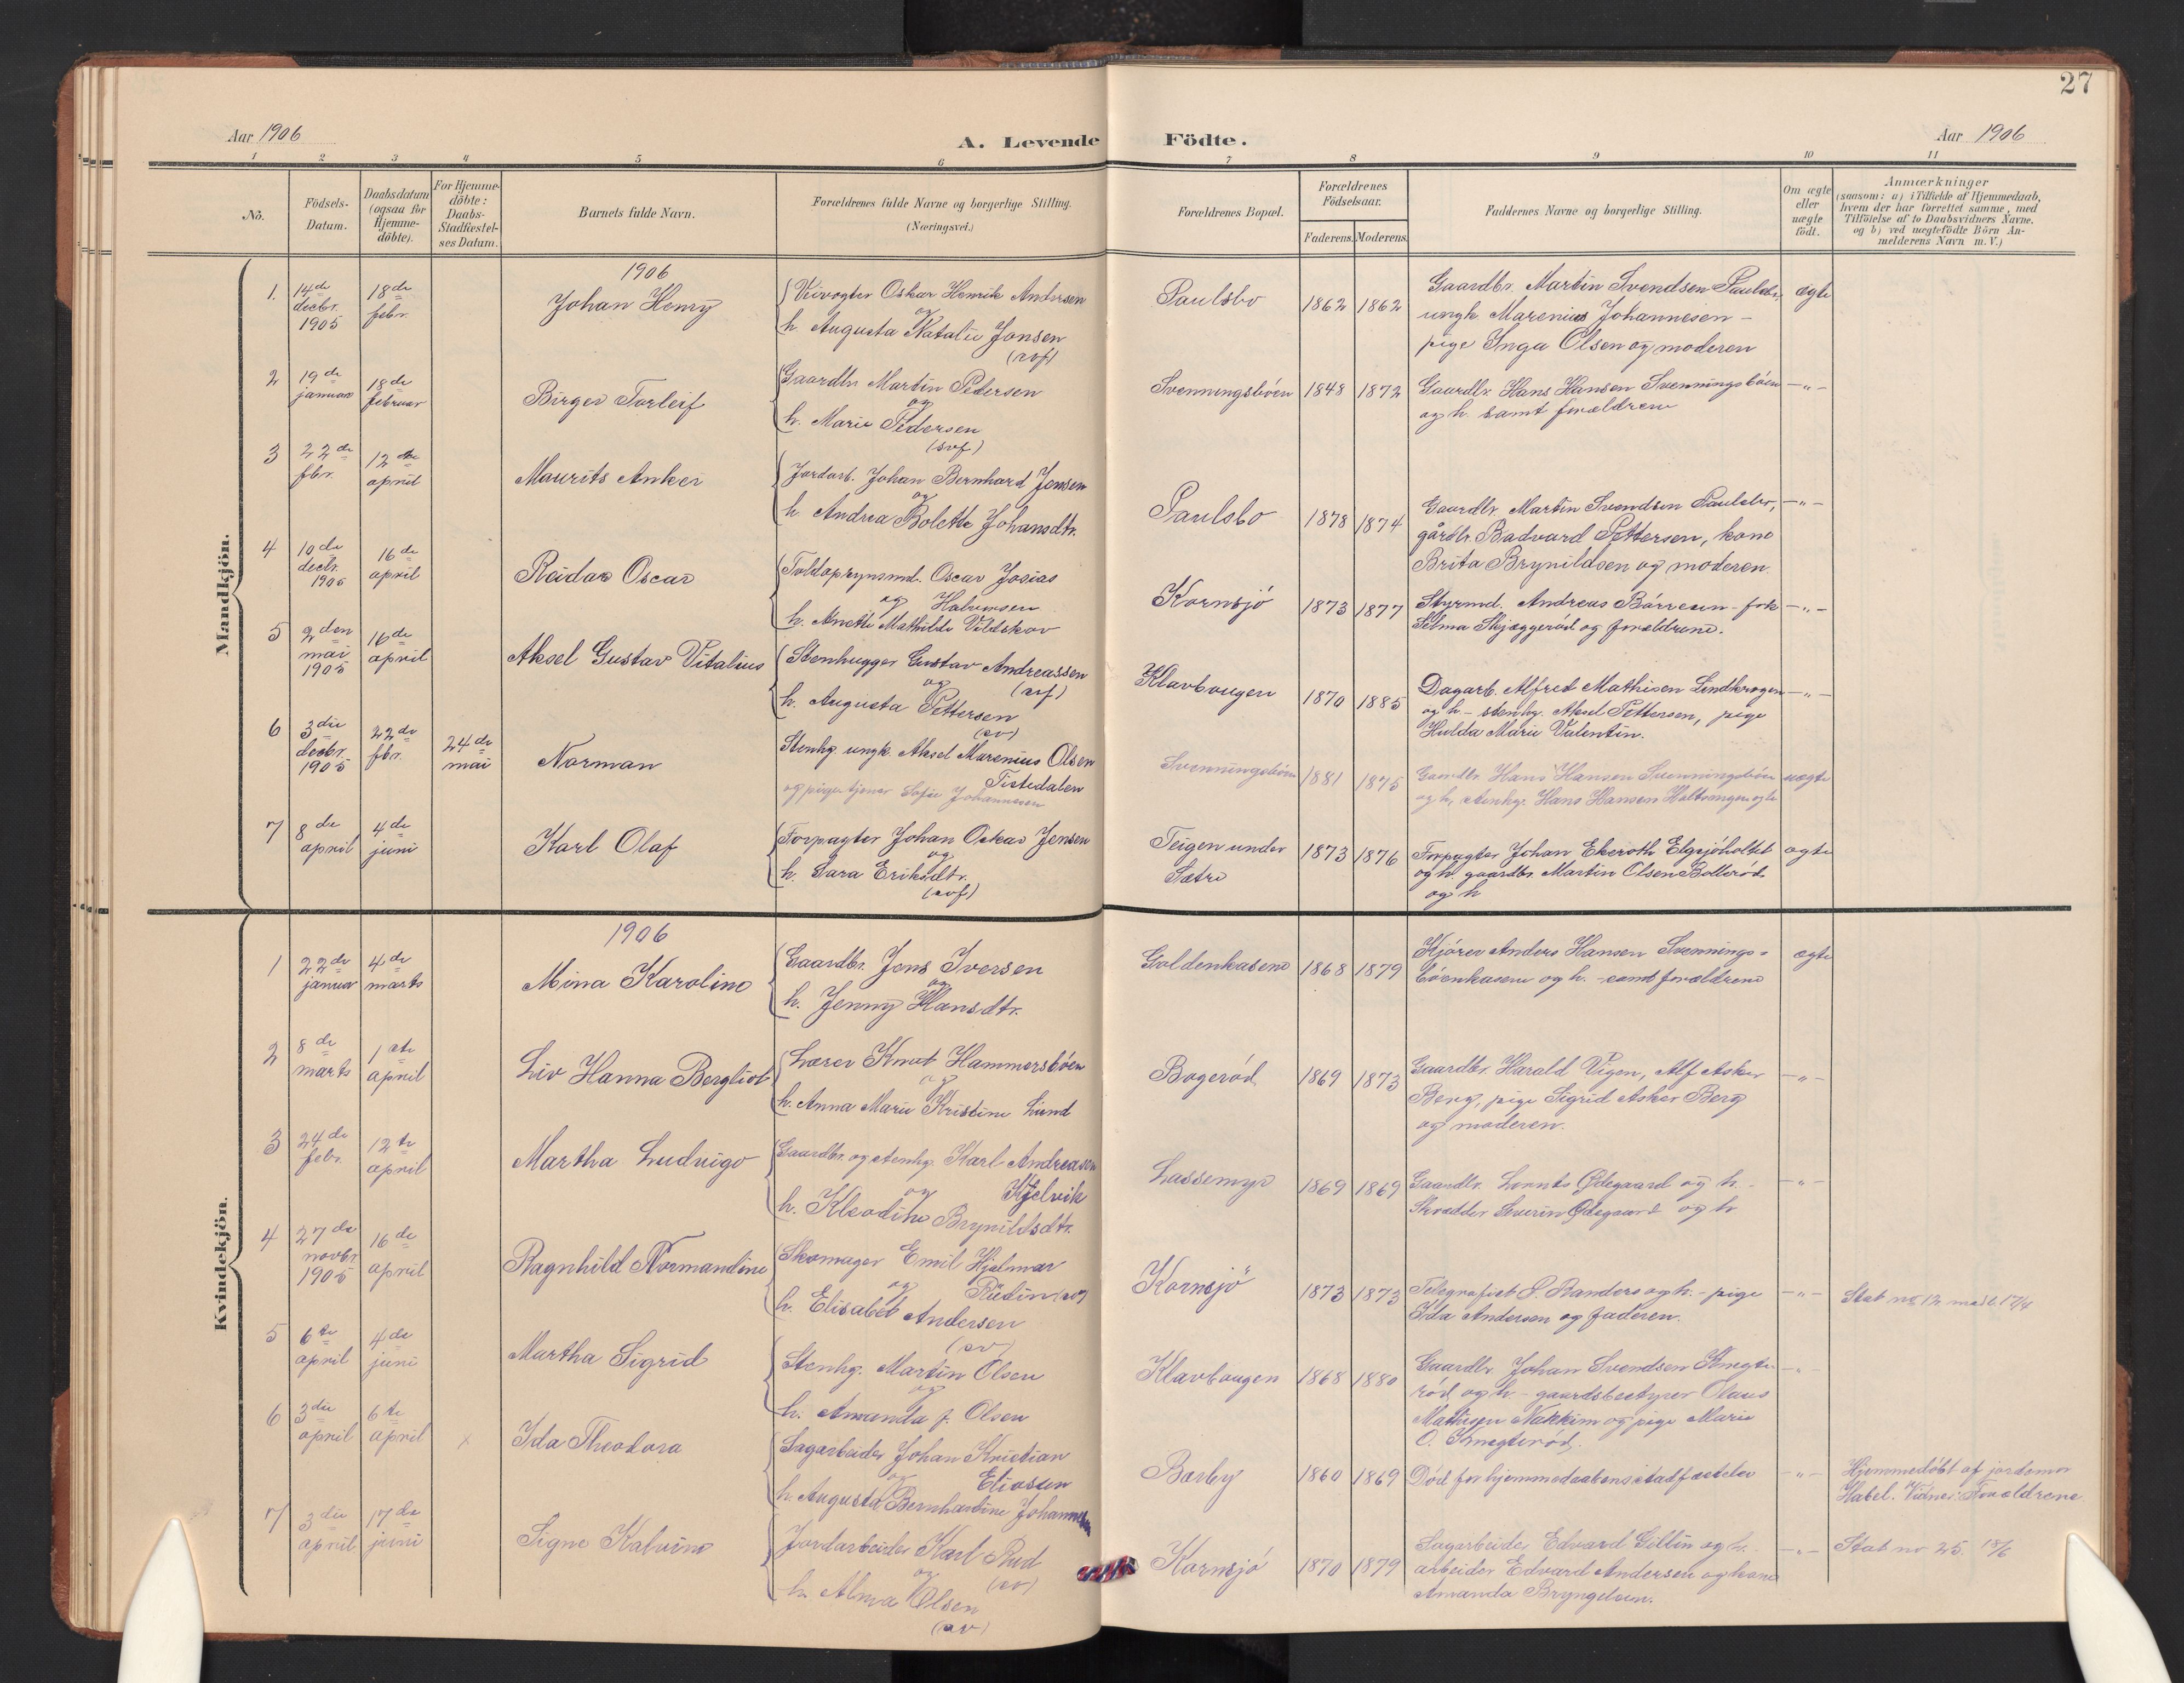 27
Aar 1906
A. Levende Födte.
Aar 1906
1 2 3 4 5 6 7 8 9 10 11
No.
Födsels-
Datum.
Daabsdatum
(ogsaa for
Hjemme-
döbte).
For Hjemme-
döbte:
Daabs-
Stadfæstel-
ses Datum.
Barnets fulde Navn.
Forældrenes fulde Navne og borgerlige Stilling.
(Næringsvei.)
Forældrenes Bopæl.
Forældrenes
Födselsaar.
Faderens. Moderens.
Faddernes Navne og borgerlige Stilling.
Om ægte
eller
uægte
födt.
Anmærkninger
(saasom: a) i Tilfælde af Hjemmedaab,
hvem der har forrettet samme, med
Tilföielse af to Daabsvidners Navne.
og b) ved uægtefödte Börn An-
melderens Navn m. V.)
Mandkjön.
1906
1. 14de decbr. 1905
18de febr.
Johan Henry
Veivogter Oskar Henrik Andersen
og
h. Augusta Natalie Jonsen
Paulsbo
1862 1862
Gaardbr. Martin Svendsen Paulsbo,
ungk. Marenius Johannesen -
pige Inga Olsen og moderen
ægte
2 19de januar
18de februar
Birger Torleif
Gaardbr Martin Pedersen
og
h. Marie Pedersen
Svenningsböen
1848 1872
Gaardbr. Hans Hansen Svenningsböen
og h. samt forældrene
-"-
3 22de fbr.
12te april
Maurits Anker
Jordarb. Johan Bernhard Jensen
og
h. Andrea Bolette Johansdtr.
Paulsbo
1878 1874
Gaardbr. Martin Svendsen Paulsbo,
gårdbr. Badvard Pettersen, kone
Brita Brynildsen og moderen.
-"-
4 10de decbr. 1905
16de april
Reidar Oscar
Toldopsynsmd. Oscar Josias
og Halvorsen
h. Anette Mathilde Vildskov
Kornsjö
1873 1877
Styrmd. Andreas Börresen - frk
Selma Skjæggeröd og forældrene.
-"-
5 2den mai 1905
16de april
Aksel Gustav Vitalius
Stenhugger Gustav Andreassen
og
h. Augusta Pettersen
Klavhaugen
1870 1885
Dagarb. Alfred Mathisen Lindhaugen
og h - stenhg. Aksel Pettersen, pige
Hulda Marie Valentin.
-"-
6 3die decbr. 1905
22de fbr.
24de mai
Norman
Stenhg. ungk. Aksel Marenius Olsen
Tistedalen
og pige tjener Sofie Johannesen
Svenningsböen
1881 1875
Gaardbr. Hans Hansen Svenningsböen
og h, stenhg. Hans Hansen
uægte
7 8de april
4de juni
Karl Olaf
Forpagter Johan Oskar Jensen
og
h. Sara Eriksdtr.
Teigen under
Sætre
1873 1876
Forpagter Johan Ekeroth Elgsjöholtet
og h. gaardbr. Martin Olsen Bolleröd
og h
ægte
Kvindekjön.
1906
1 22de januar
4de marts
Mina Karoline
Gaardbr. Jens Iversen
og
h. Jenny Hansdtr.
Goldenkasene
1868 1879
Kjörer Anders Hansen Svennings-
böenkasene og h. - samt forældrene
ægte
2 8de marts
1ste april
Liv Hanna Bergliot
Lærer Knut Hammersböen
og
h. Anna Marie Kristine Lund
Bogeröd
1869 1873
Gaardbr. Harald Vigen, Alf Asker
Berg, pige Sigrid Asker Berg
og moderen.
-"-
3 24de febr.
12te april
Martha Ludviga
Gaardbr. og stenhg. Karl Andreasen
og Kjelvik
h. Kleodine Brynildsdtr.
Lassemyr
1869 1869
Gaardbr. Lornts Ødegaard og h. -
Skrædder Severin Ødegaard og h
-"-
4 27de novbr 1905
16de april
Ragnhild Normandine
Skomager Emil Hjalmar
og Rudin
h. Elisabet Andersen
Kornsjö
1873 1873
Telegrafist S. Randers og h. - pige
Ida Andersen og faderen.
-"-
Stat no 12 17/4
5 6te april
4de juni
Martha Sigrid
Stenhg. Martin Olsen
og
h. Amanda f. Olsen
Klavhaugen
1868 1880
Gaardbr. Johan Svendsen Knegte-
röd og h - gaardsbestyrer Olaus
Mathisen Nakkim og pige Marie
O. Knegteröd.
-"-
6 3die april
6te april
x
Ida Theodora
Sagarbeider Johan Kristian
og Eliassen
h. Augusta Bernhardine Johannesen
Barby
1860 1869
Död för hjemmedaabens stadfæstelse
-"-
Hjemmedöbt af jordemor
Habel. Vidner: Forældrene
7 3die april
17de juni
Signe Kalvine
Jordarbeider Karl Rud
og
h. Alma Olsen
Kornsjö
1870 1879
Sagarbeider Edvard Gillin og h.
arbeider Edvard Andersen og kone
Amanda Bryngelsen.
-"-
Stat no 25. 18/6